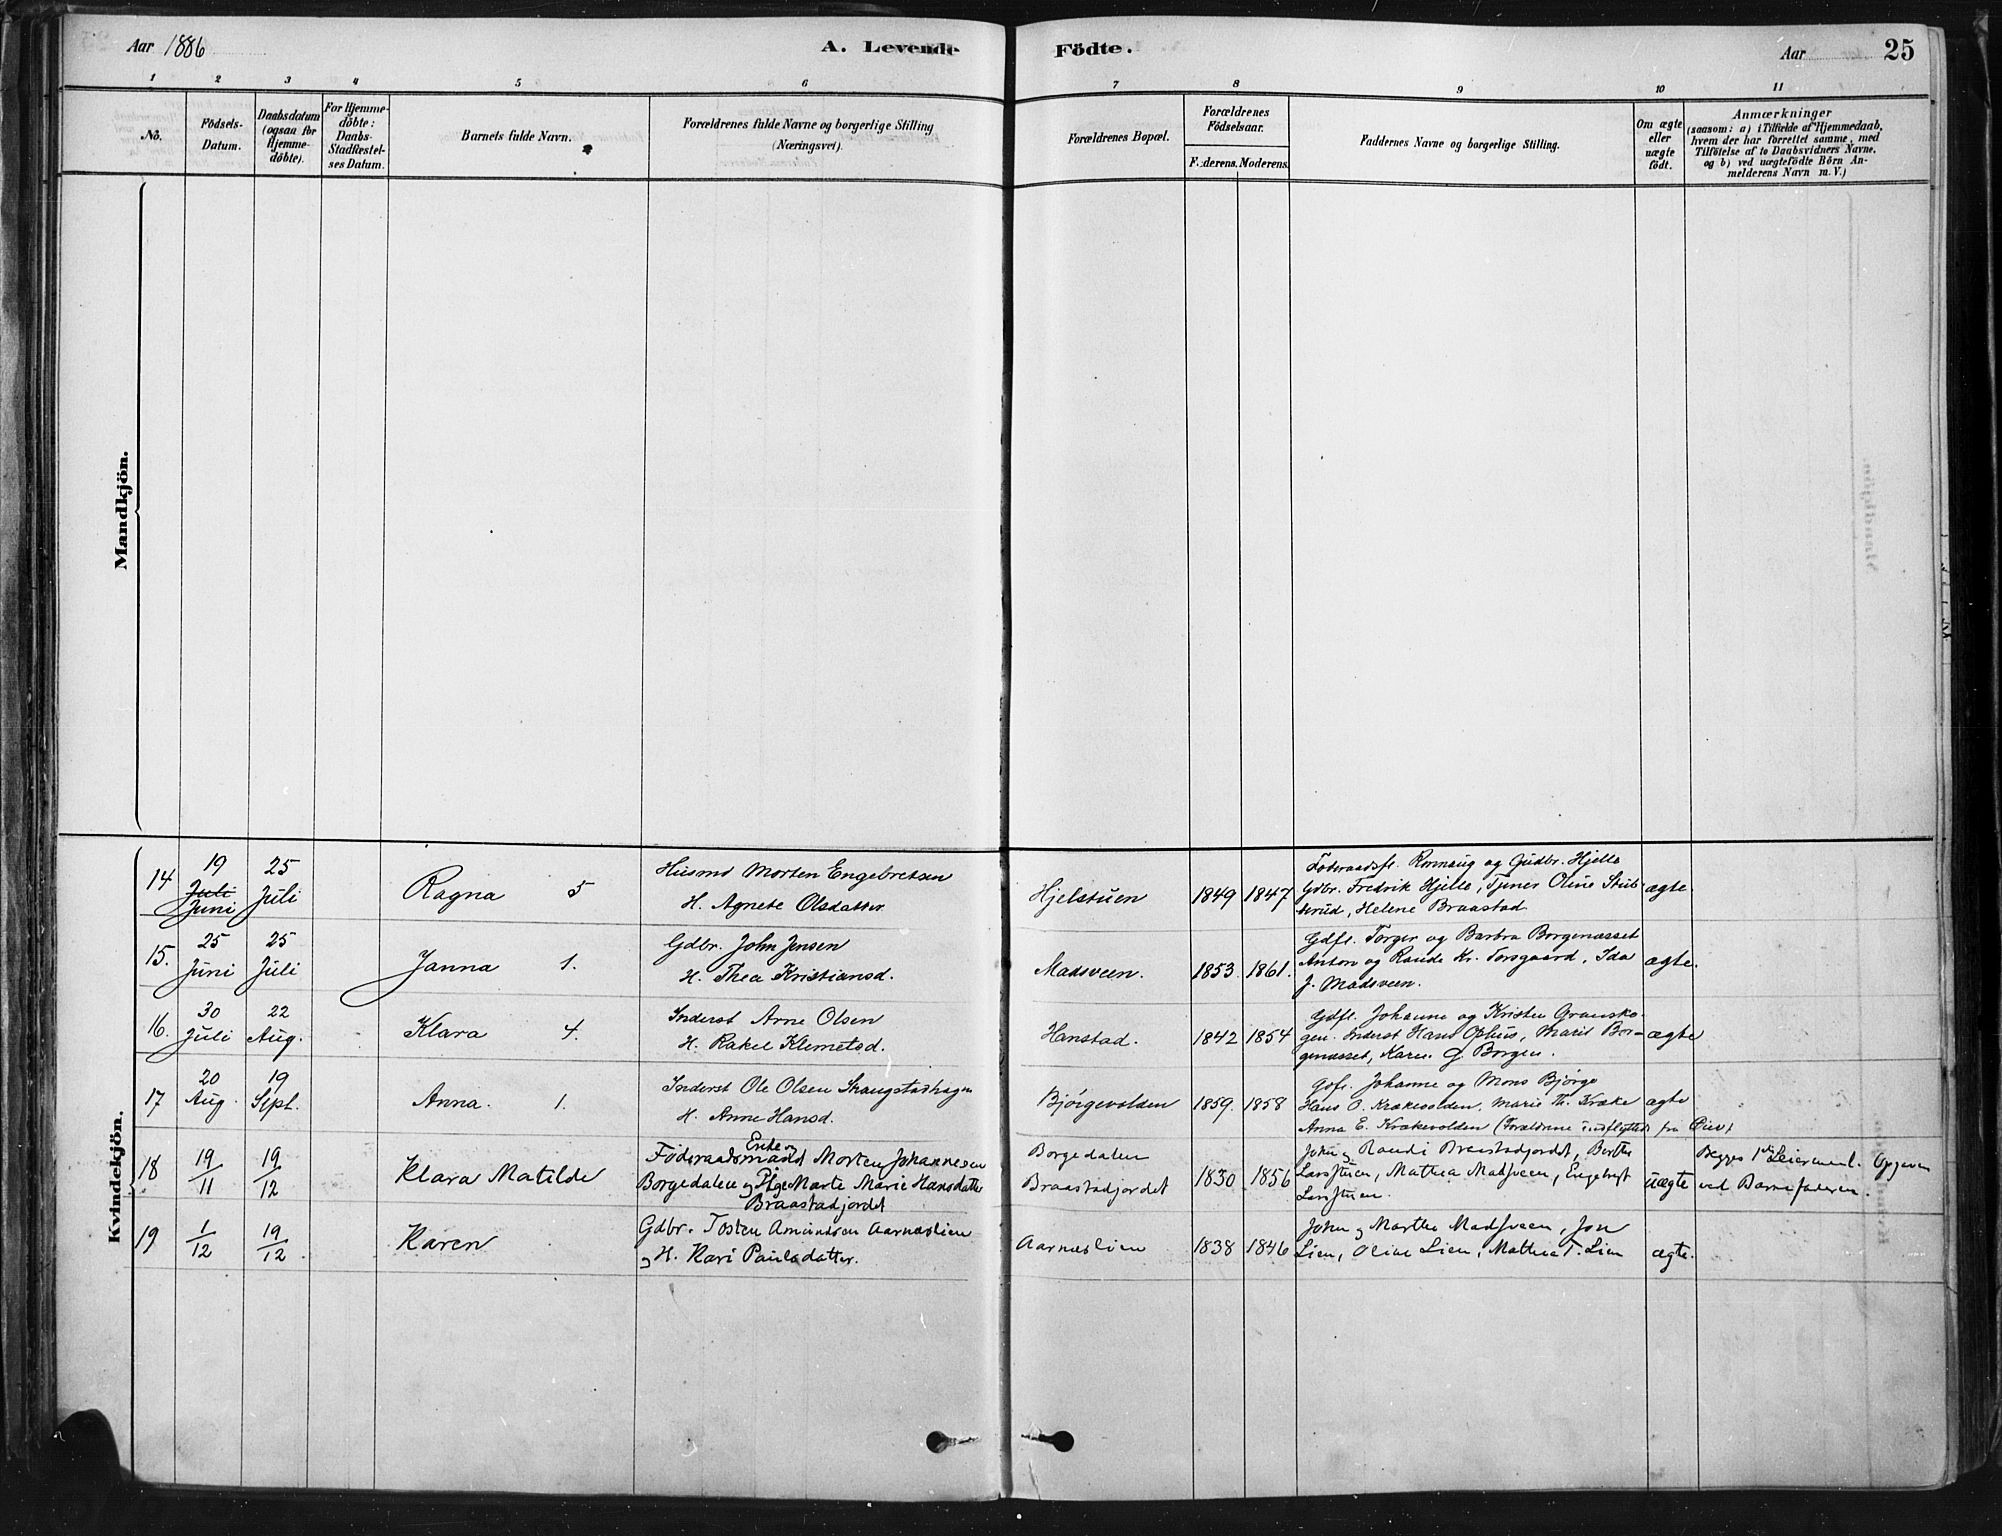 Aar 1886
A. Levende Födte.
Aar
25
1 2 3 4 5 6 7 8 9 10 11
No.
Födsels-Datum.
Daabsdatum (ogsaa for Hjemmedöbte).
For Hjemmedöbte: Daabs-Stadfæstelses Datum.
Barnets fulde Navn.
Forældrenes fulde Navne og borgerlige Stilling (Næringsvei).
Forældrenes Bopæl.
Forældrenes Födselsaar.
Faderens. Moderens.
Faddernes Navne og borgerlige Stilling.
Om ægte eller uægte födt.
Anmærkninger
(saasom: a) i Tilfælde af Hjemmedaab, hvem der har forrettet samme, med Tilföielse af to Daabsvidners Navne, og b) ved uægtefödte Börn Anmelderens Navn m. V.)
Mandkjön.
Kvindekjön.
14 19 Juli Juni 25 Juli Ragna 5
Husmd Morten Engebretsen
H. Agnete Olsdatter
Hjelstuen 1849 1847
Föderaadsfl. Ronnaug og Gudbr. Hjelle
Gdbr. Fredrik Hjelle, Tjener Oline Stub-
berud, Helene Braastad
ægte
15. 25 Juni 25 Juli Janna 1.
Gdbr. John Jensen
H. Thea Kristiansd.
Madsveen. 1853. 1861.
Gdfl. Torger og Barbra Borgenæsset
Anton og Rande Kr. Forsgaard, Ida
J. Madsveen.
ægte.
16. 30 Juli 22 Aug. Klara 4.
Inderst Arne Olsen
H. Rakel Klemetsd.
Hanstad. 1842 1854
Gdfl. Johanne og Kristen Gransko-
gen. Inderst Hans Ophus, Marit Bor-
genæsset, Karen G. Borgen.
ægte
17 20 Aug. 19 Sept. Anna. 1.
Inderst Ole Olsen Skaugstadhagen
H. Anne Hansd.
Bjørgevolden 1859. 1858
Gdfl. Johanne og Mons Bjørge
Hans O. Krækevolden, Marie Th. Kræke
Anna E. Krækevolden (Forældrene indflyttede fra Øier)
ægte
18 19/11 19/12 Klara Matilde
Enke og
Föderaadsmand Morten Johannesen
Borgedalen og Pige Marte Marie Hansdatter
Braastadjordet
Borgedalen
Braastadjordet 1830 1856
John og Randi Braastadjordet, Berthe
Larsstuen, Mathea Madsveen, Engebregt
Larsstuen.
uægte
Begges 1ste Leiermaal. Opgiven
ved Barnefaderen.
19 1/12 19/12 Karen
Gdbr. Tosten Amundsen Aarnæslien
og H. Kari Paulsdatter.
Aarnæslien 1838 1846
John og Marthe Madsveen, Jon
Lien, Oline Lien, Mathea T. Lien
ægte.